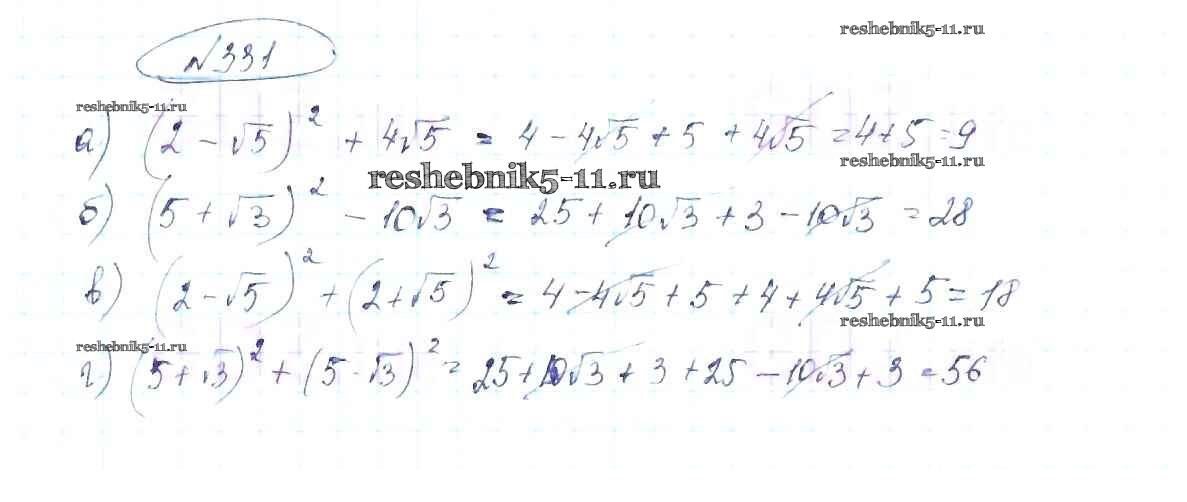 reshebnik5-11.ru
№331
reshebnik5-11.ru
а) (2 - √5)² + 4√5 = 4 - 4√5 + 5 + 4√5 = 4+5 = 9
reshebnik5-11.ru
reshebnik5-11.ru
б) (5 + √3)² - 10√3 = 25 + 10√3 + 3 - 10√3 = 28
в) (2 - √5)² + (2 + √5)² = 4 - 4√5 + 5 + 4 + 4√5 + 5 = 18
reshebnik5-11.ru
reshebnik5-11.ru
г) (5 + √3)² + (5 - √3)² = 25 + 10√3 + 3 + 25 - 10√3 + 3 = 56